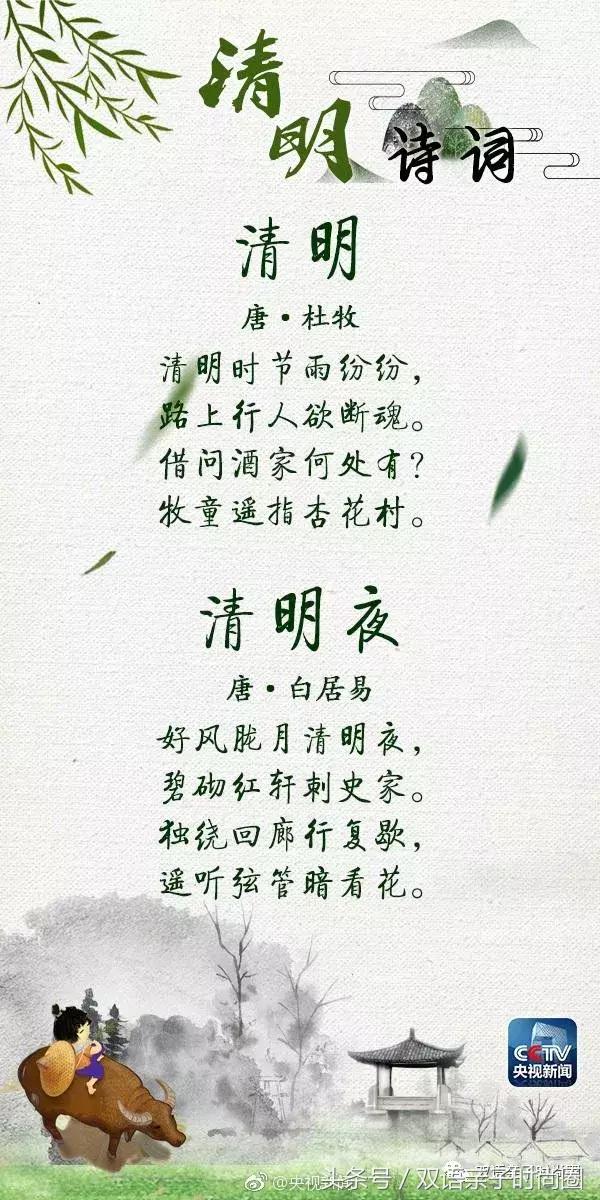 清明
诗词
清明
唐·杜牧
清明时节雨纷纷，
路上行人欲断魂。
借问酒家何处有？
牧童遥指杏花村。
清明夜
唐·白居易
好风胧月清明夜，
碧砌红轩刺史家。
独绕回廊行复歇，
遥听弦管暗看花。
CCTV
央视新闻
头条号／双语亲子时尚圈